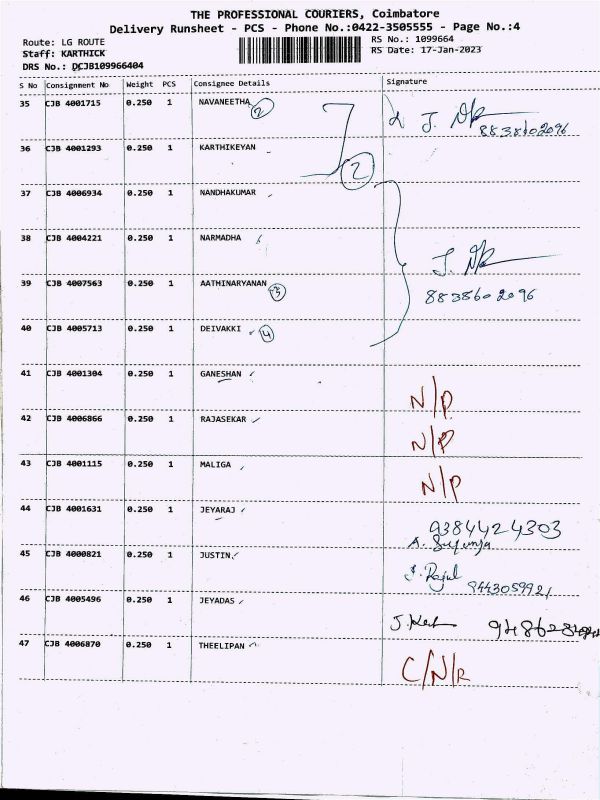 THE PROFESSIONAL COURIERS, Coimbatore
Delivery Runsheet - PCS - Phone No.:0422-3505555 - Page No.:4
Route: LG ROUTE
RS No.: 1099664
Staff: KARTHICK
RS Date: 17-Jan-2023
DRS No.: DCJB109966404
S No Consignment No Weight PCS Consignee Details Signature
35 CJB 4001715 0.250 1 NAVANEETHA 2
8838602096
36 CJB 4001293 0.250 1 KARTHIKEYAN
2
37 CJB 4006934 0.250 1 NANDHAKUMAR
38 CJB 4004221 0.250 1 NARMADHA
39 CJB 4007563 0.250 1 AATHINARYANAN 3
8838602096
40 CJB 4005713 0.250 1 DEIVAKKI 4
41 CJB 4001304 0.250 1 GANESHAN N/P
42 CJB 4006866 0.250 1 RAJASEKAR N/P
43 CJB 4001115 0.250 1 MALIGA N/P
44 CJB 4001631 0.250 1 JEYARAJ 9384424303
45 CJB 4000821 0.250 1 JUSTIN
9443059921
46 CJB 4005496 0.250 1 JEYADAS
47 CJB 4006870 0.250 1 THEELIPAN C/N/R